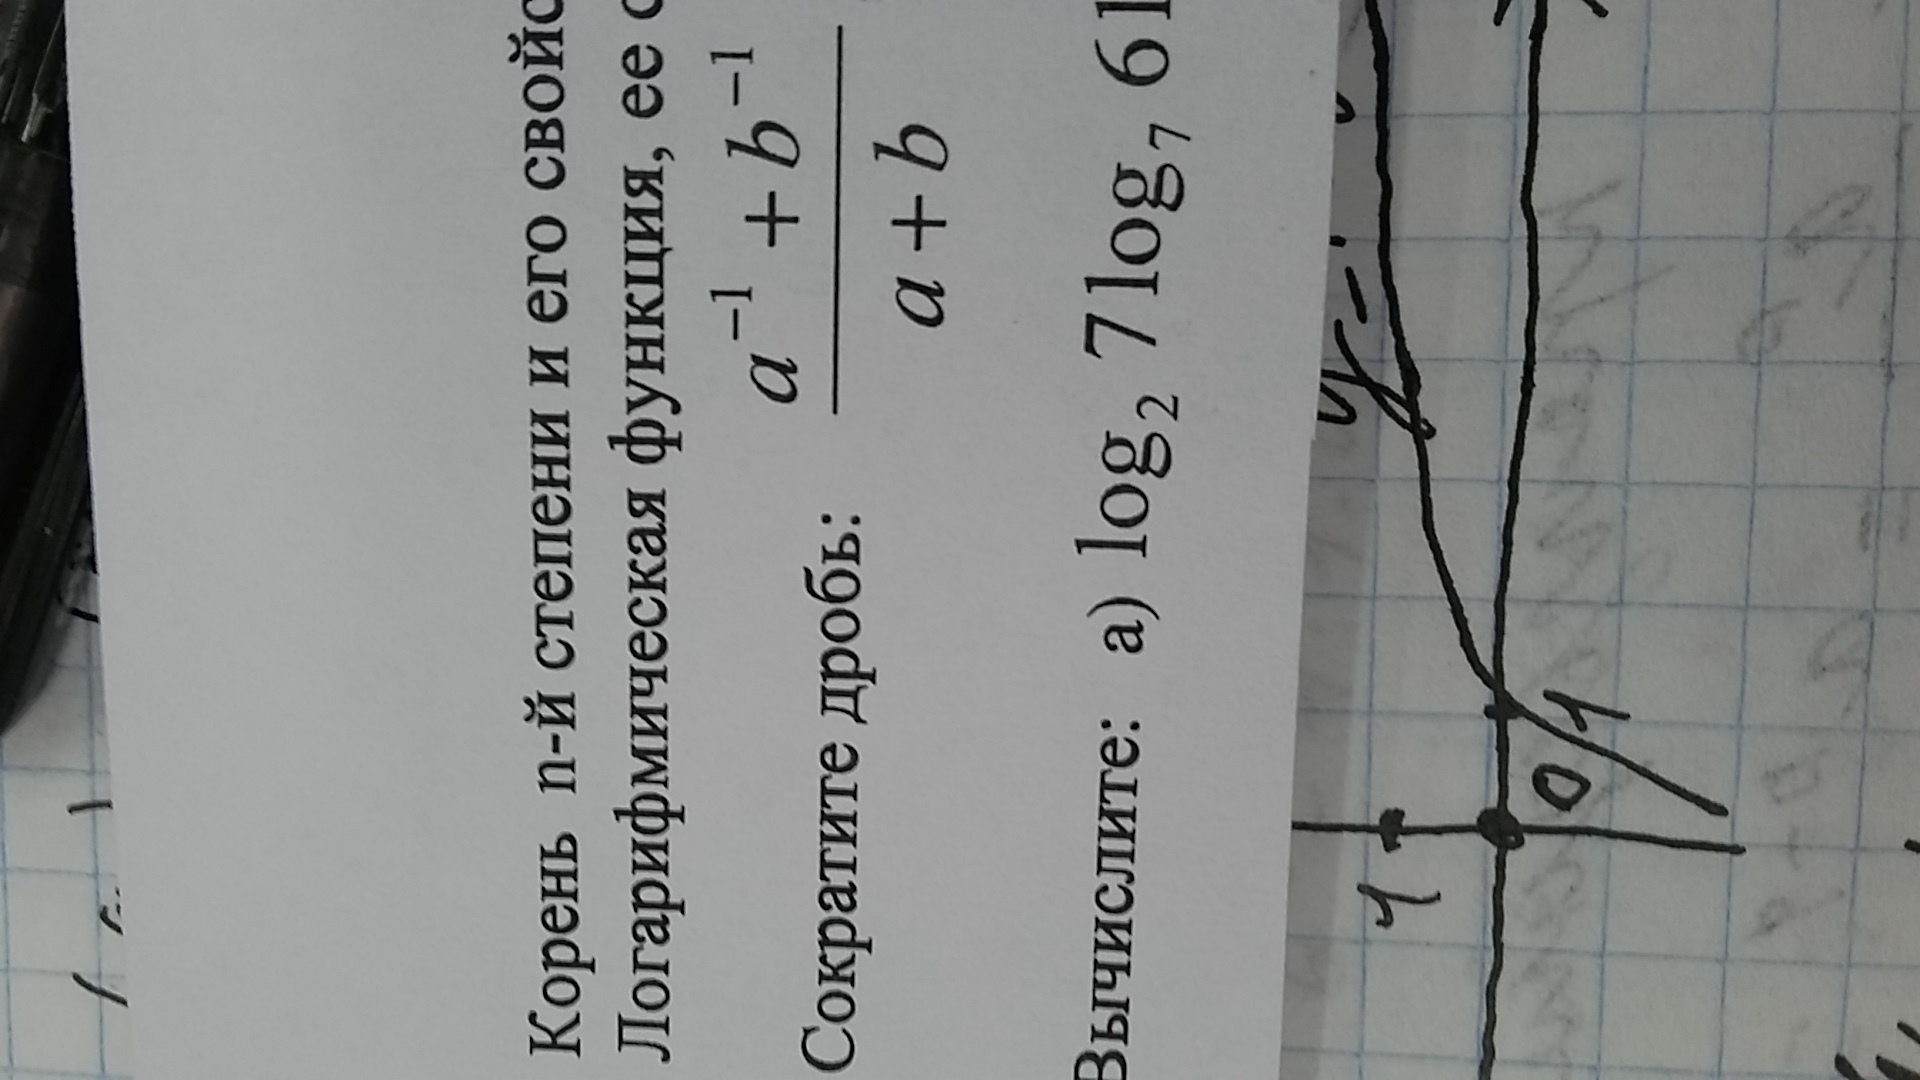 Корень n-й степени и его свойс
Логарифмическая функция, ее с
Сократите дробь: (a⁻¹ + b⁻¹)/(a + b)
Вычислите: а) log₂ 7 log₇ 6 l
y =
1
0 1